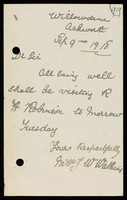 Willowdene
Ashworth
Sep 9 1918
Dr Sir
All being well
shall be visiting R
H Robinson to morrow
Tuesday
Your Respectfully
W Watkins